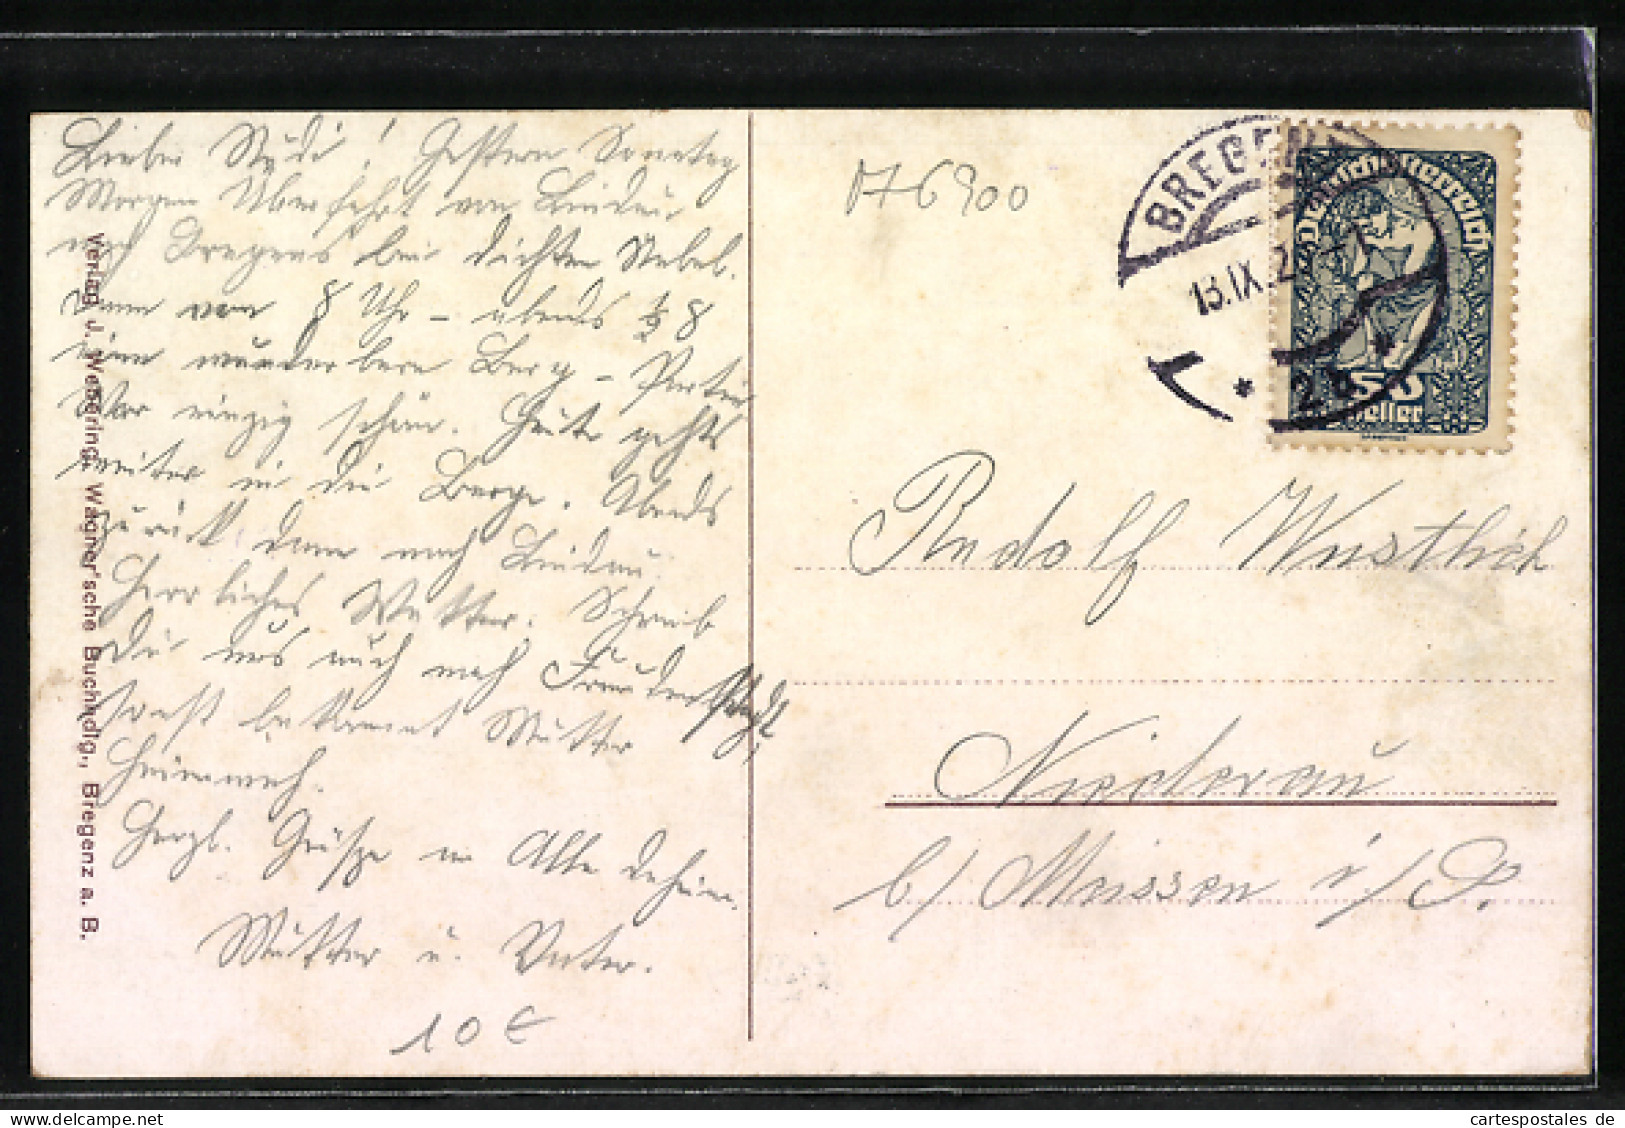 Lieber Rudi! Gestern Sonntag
Morgen Überfahrt von Lindau
nach Bregenz bei dichten Nebel.
Dann von 8 Uhr – abends ½ 8
eine wunderbare Berg-Partie
War einzig schön. Heute gehts
weiter in die Berge. Abends
zurück dann nach Lindau.
Herrliches Wetter. Schreib
Du uns auch nach Freudenstadt,
sonst bekommt Mutter
Heimweh.
Herzl. Grüße an Alle daheim.
Mutter u. Vater.
10 €
Verlag J. Wehring, Wagner'sche Buchhdlg., Bregenz a. B.
076900
BREGENZ
13.IX.2
* 2a *
Deutschösterreich
50
Heller
Rudolf Wustlich
Niederau
b/ Meissen i/S.
cartespostales de